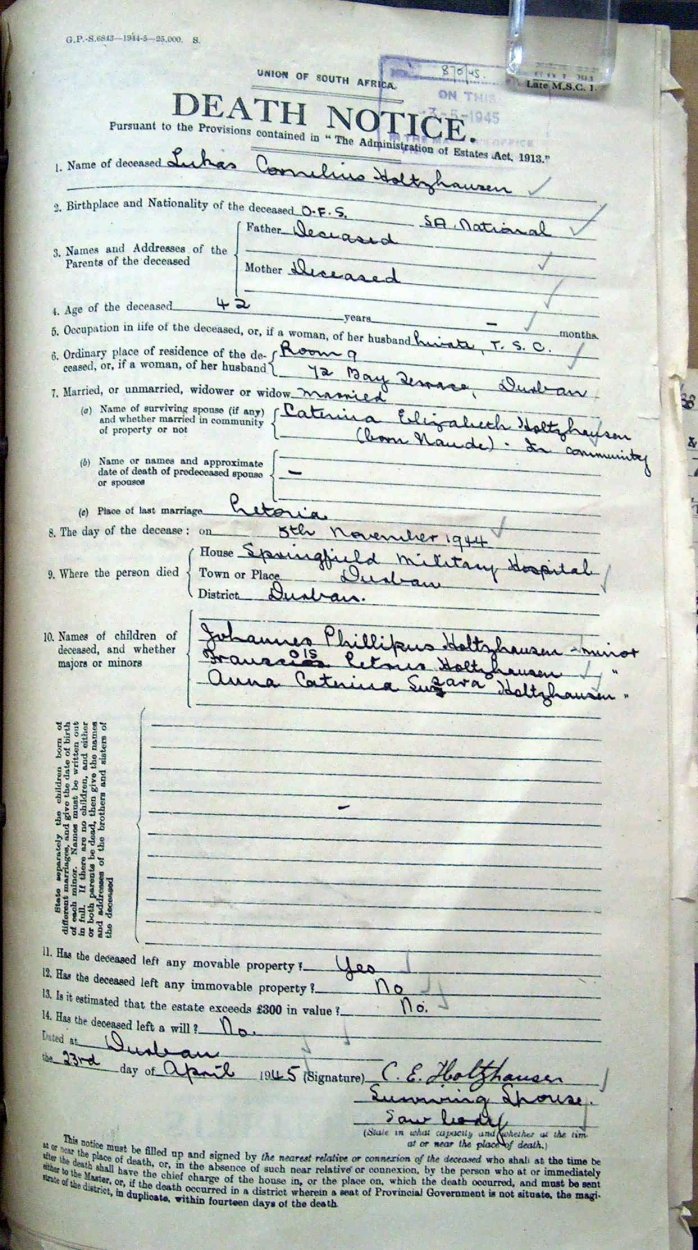 G.P.-S.6843—1944-5—25,000. S.
870/45.
Late M.S.C. 1.
UNION OF SOUTH AFRICA.
ON THIS
3-5-1945
IN THE MASTER'S OFFICE
DEATH NOTICE.
Pursuant to the Provisions contained in "The Administration of Estates Act, 1913."
1. Name of deceased Lukas Cornelius Holtzhausen
2. Birthplace and Nationality of the deceased O.F.S. SA. National
3. Names and Addresses of the Parents of the deceased
Father Deceased
Mother Deceased
4. Age of the deceased 42 years — months.
5. Occupation in life of the deceased, or, if a woman, of her husband Private, T.S.C.
6. Ordinary place of residence of the deceased, or, if a woman, of her husband
Room 9
72 Bay Terrace, Durban
7. Married, or unmarried, widower or widow married
(a) Name of surviving spouse (if any) and whether married in community of property or not
Caterina Elizabeth Holtzhausen
(born Naude) - In community
(b) Name or names and approximate date of death of predeceased spouse or spouses
—
(c) Place of last marriage Pretoria
8. The day of the decease: on 5th November 1944
9. Where the person died
House Springfield Military Hospital
Town or Place Durban
District Durban.
10. Names of children of deceased, and whether majors or minors
Johannes Phillipus Holtzhausen - minor
Fransois Petrus Holtzhausen "
Anna Caterina Suzzara Holtzhausen "
State separately the children born of different marriages, and give the date of birth of each minor. Names must be written out in full. If there are no children, and either or both parents be dead, then give the names and addresses of the brothers and sisters of the deceased
—
11. Has the deceased left any movable property? Yes
12. Has the deceased left any immovable property? No
13. Is it estimated that the estate exceeds £300 in value? No.
14. Has the deceased left a will? No.
Dated at Durban
the 23rd day of April 1945 (Signature) C. E. Holtzhausen
Surviving Spouse.
Saw body
(State in what capacity and whether at the time at or near the place of death.)
This notice must be filled up and signed by the nearest relative or connexion of the deceased who shall at the time be
at or near the place of death, or, in the absence of such near relative or connexion, by the person who at or immediately
after the death shall have the chief charge of the house in, or the place on, which the death occurred, and must be sent
either to the Master, or, if the death occurred in a district wherein a seat of Provincial Government is not situate, the magi-
strate of the district, in duplicate, within fourteen days of the death.